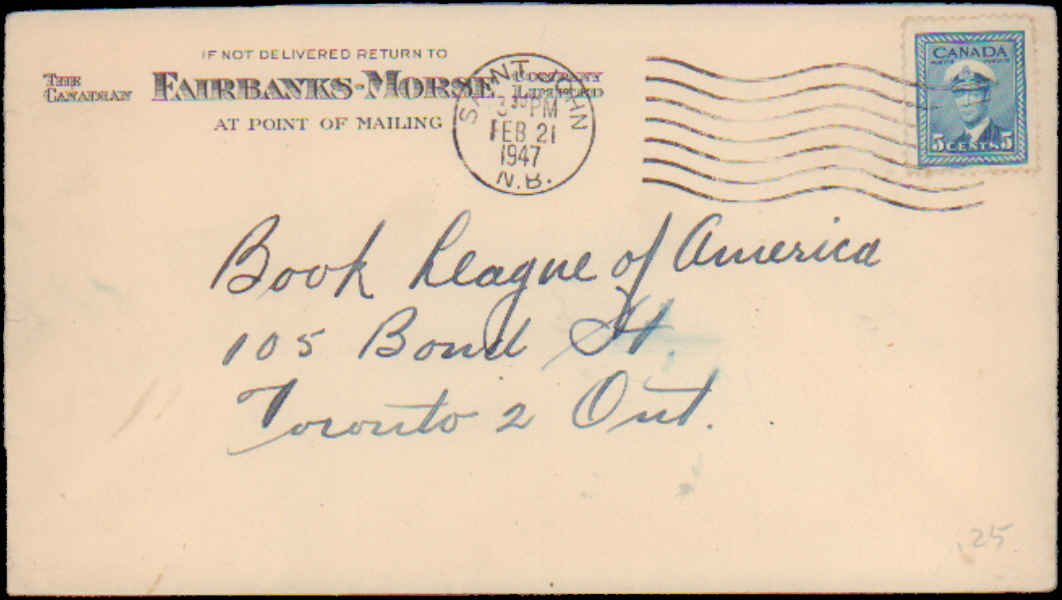 IF NOT DELIVERED RETURN TO
THE CANADIAN FAIRBANKS-MORSE COMPANY LIMITED
AT POINT OF MAILING
SAINT JOHN
3 30 PM
FEB 21
1947
N.B.
CANADA
5 CENTS 5
Book League of America
105 Bond St
Toronto 2 Ont.
.25